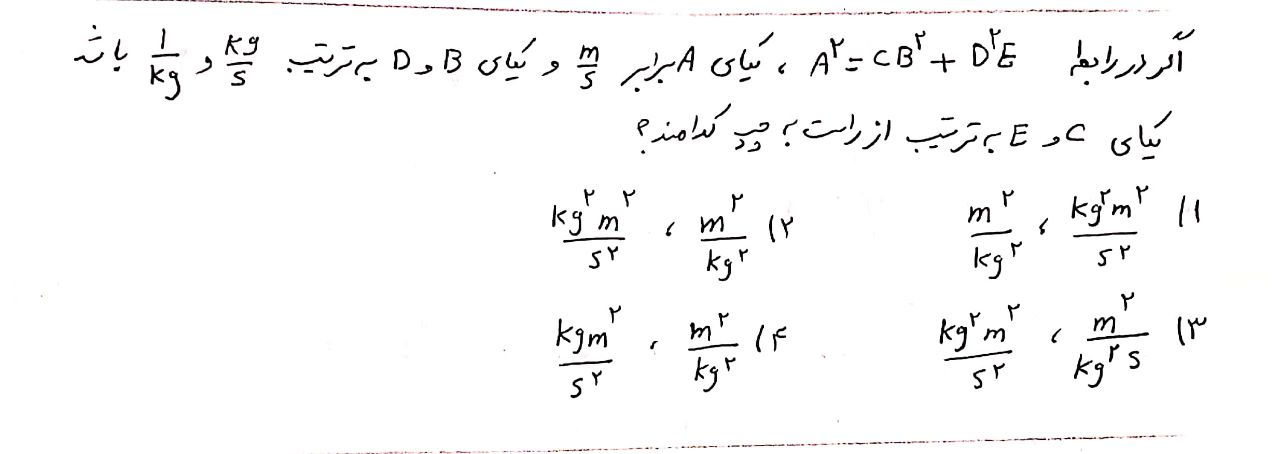 اگر در رابطه A²=CB²+D²E ، یکای A برابر m/s و یکای B و D به ترتیب kg/s و 1/kg باشد
یکای C و E به ترتیب از راست به چپ کدامند؟
۱) kg²m²/s² ، m²/kg² ۲) m²/kg² ، kg²m²/s²
۳) m²/kg²s ، kg²m²/s² ۴) m²/kg² ، kgm²/s²